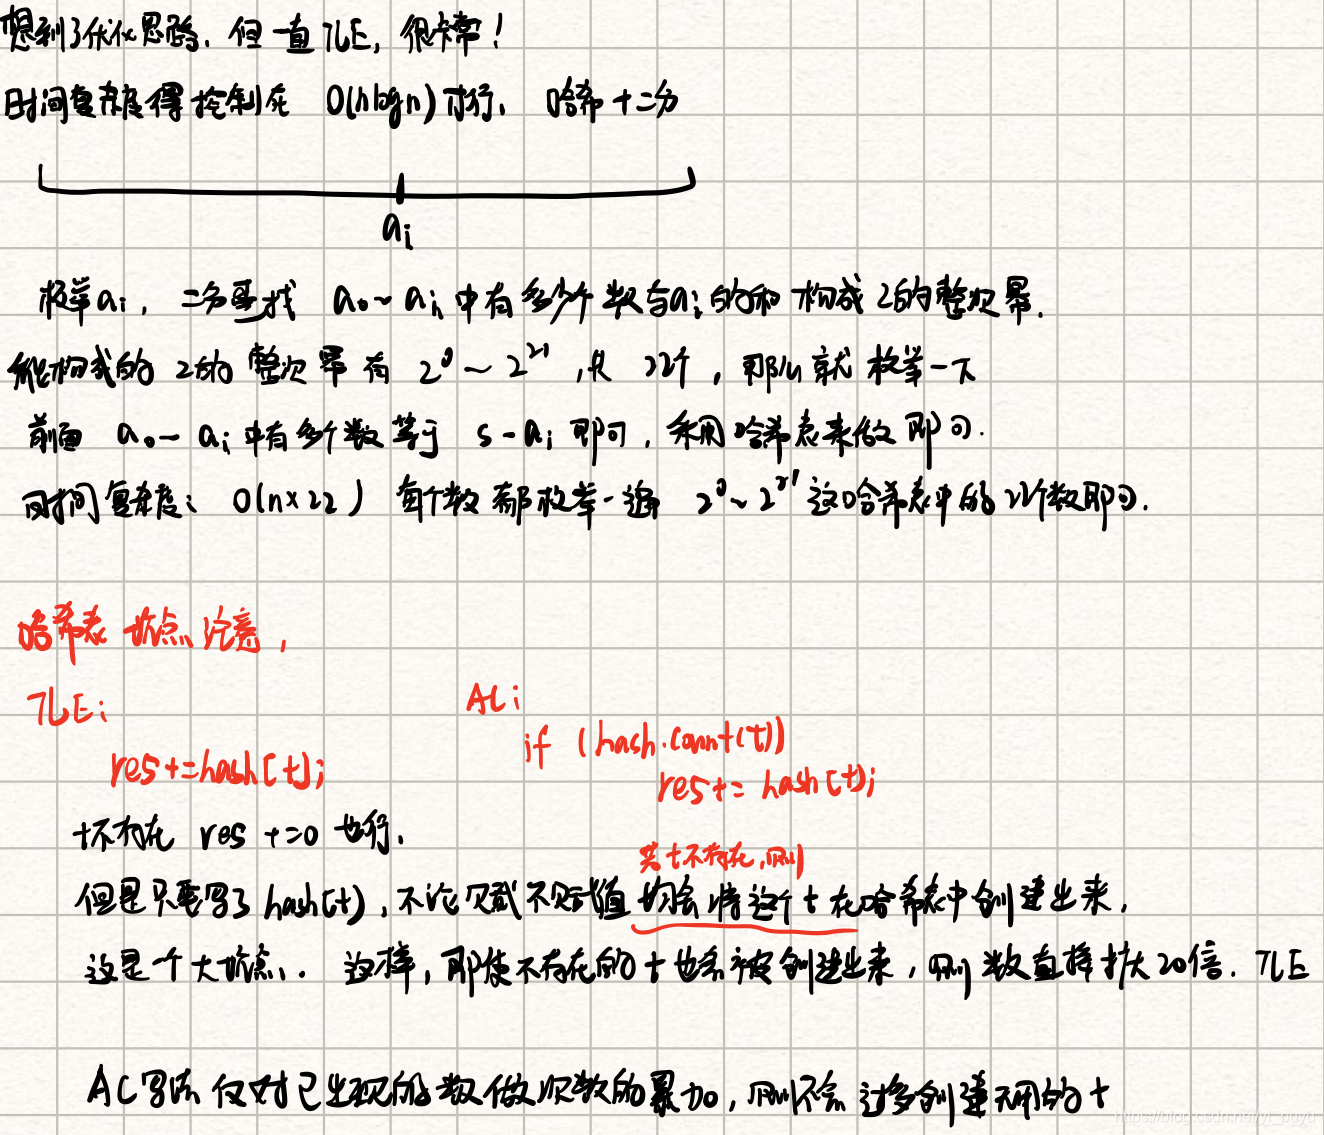 想到了优化思路、但一直TLE，很卡常！
时间复杂度得控制在 O(nlogn) 才行、 哈希+二分
ai
枚举ai， 二分查找 a0~ai 中有多少个数与ai的和构成2的整次幂.
能构成的 2的 整次幂有 2^0 ~ 2^21 ,共 22个，那么就枚举一下
前面 a0~ai 中有多少个数等于 s-ai 即可，采用哈希表来做即可.
时间复杂度： O(n×22) 每个数都枚举一遍 2^0~2^21 这哈希表中的22个数即可.
哈希表 坑点注意，
TLE:
AC:
if (hash.count(t))
res+=hash[t];
res+= hash[t];
t不存在 res +=0 也行.
若t不存在,则
但是只要写了 hash[t]，不论赋或不赋值 均会将这个t在哈希表中创建出来，
这是一个大坑点. 这样，即使不存在的t也会被创建出来，则数直接扩大20倍. TLE
AC写法 仅对已出现的数做次数的累加，则不会过多创建无用的t